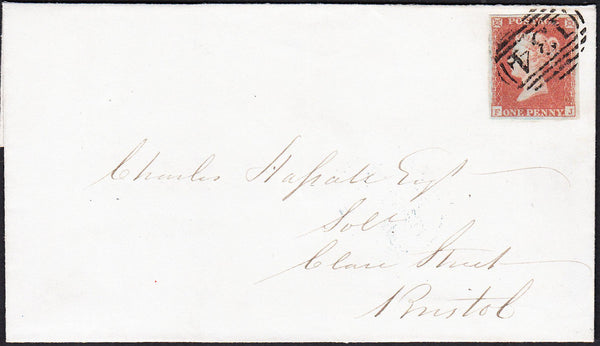 POSTAGE
ONE PENNY
F J
Charles Hassall Esqr
Solr
Clare Street
Bristol